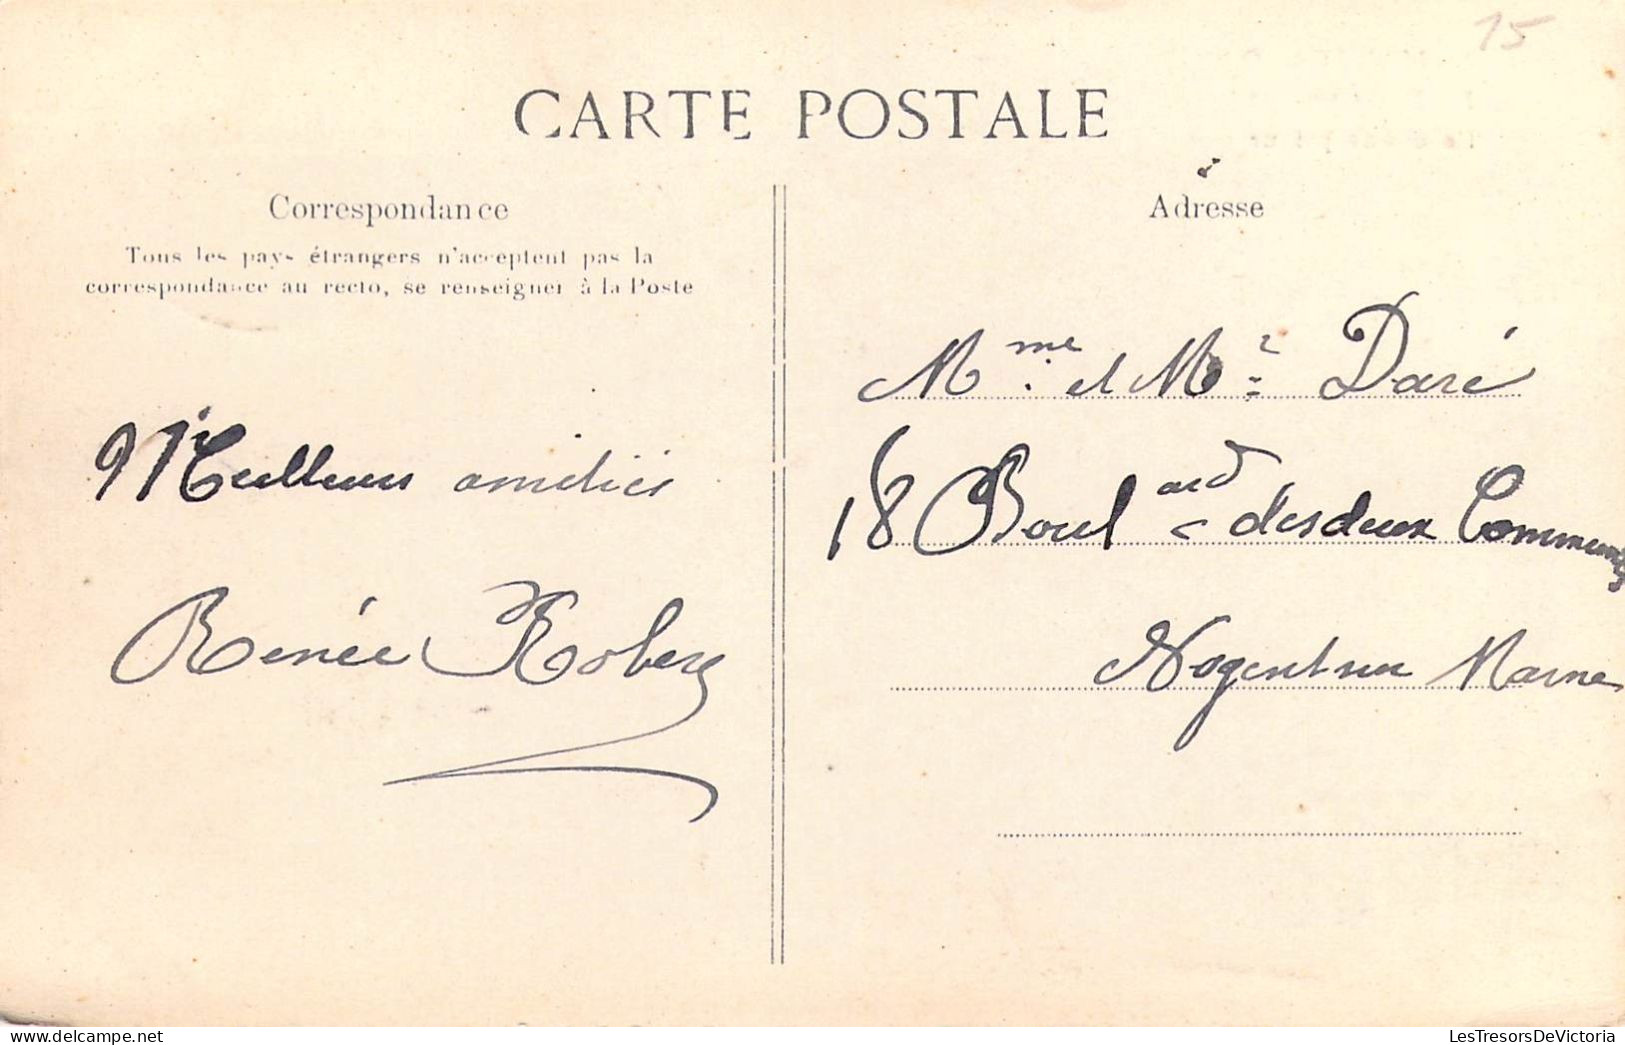 15
CARTE POSTALE
Correspondance
Tous les pays étrangers n'acceptent pas la
correspondance au recto, se renseigner à la Poste
Meilleures amitiés
Renée
Adresse
Mme et Mr Daré
18 Boulard des deux Communes
Nogent sur Marne
LesTresorsDeVictoria